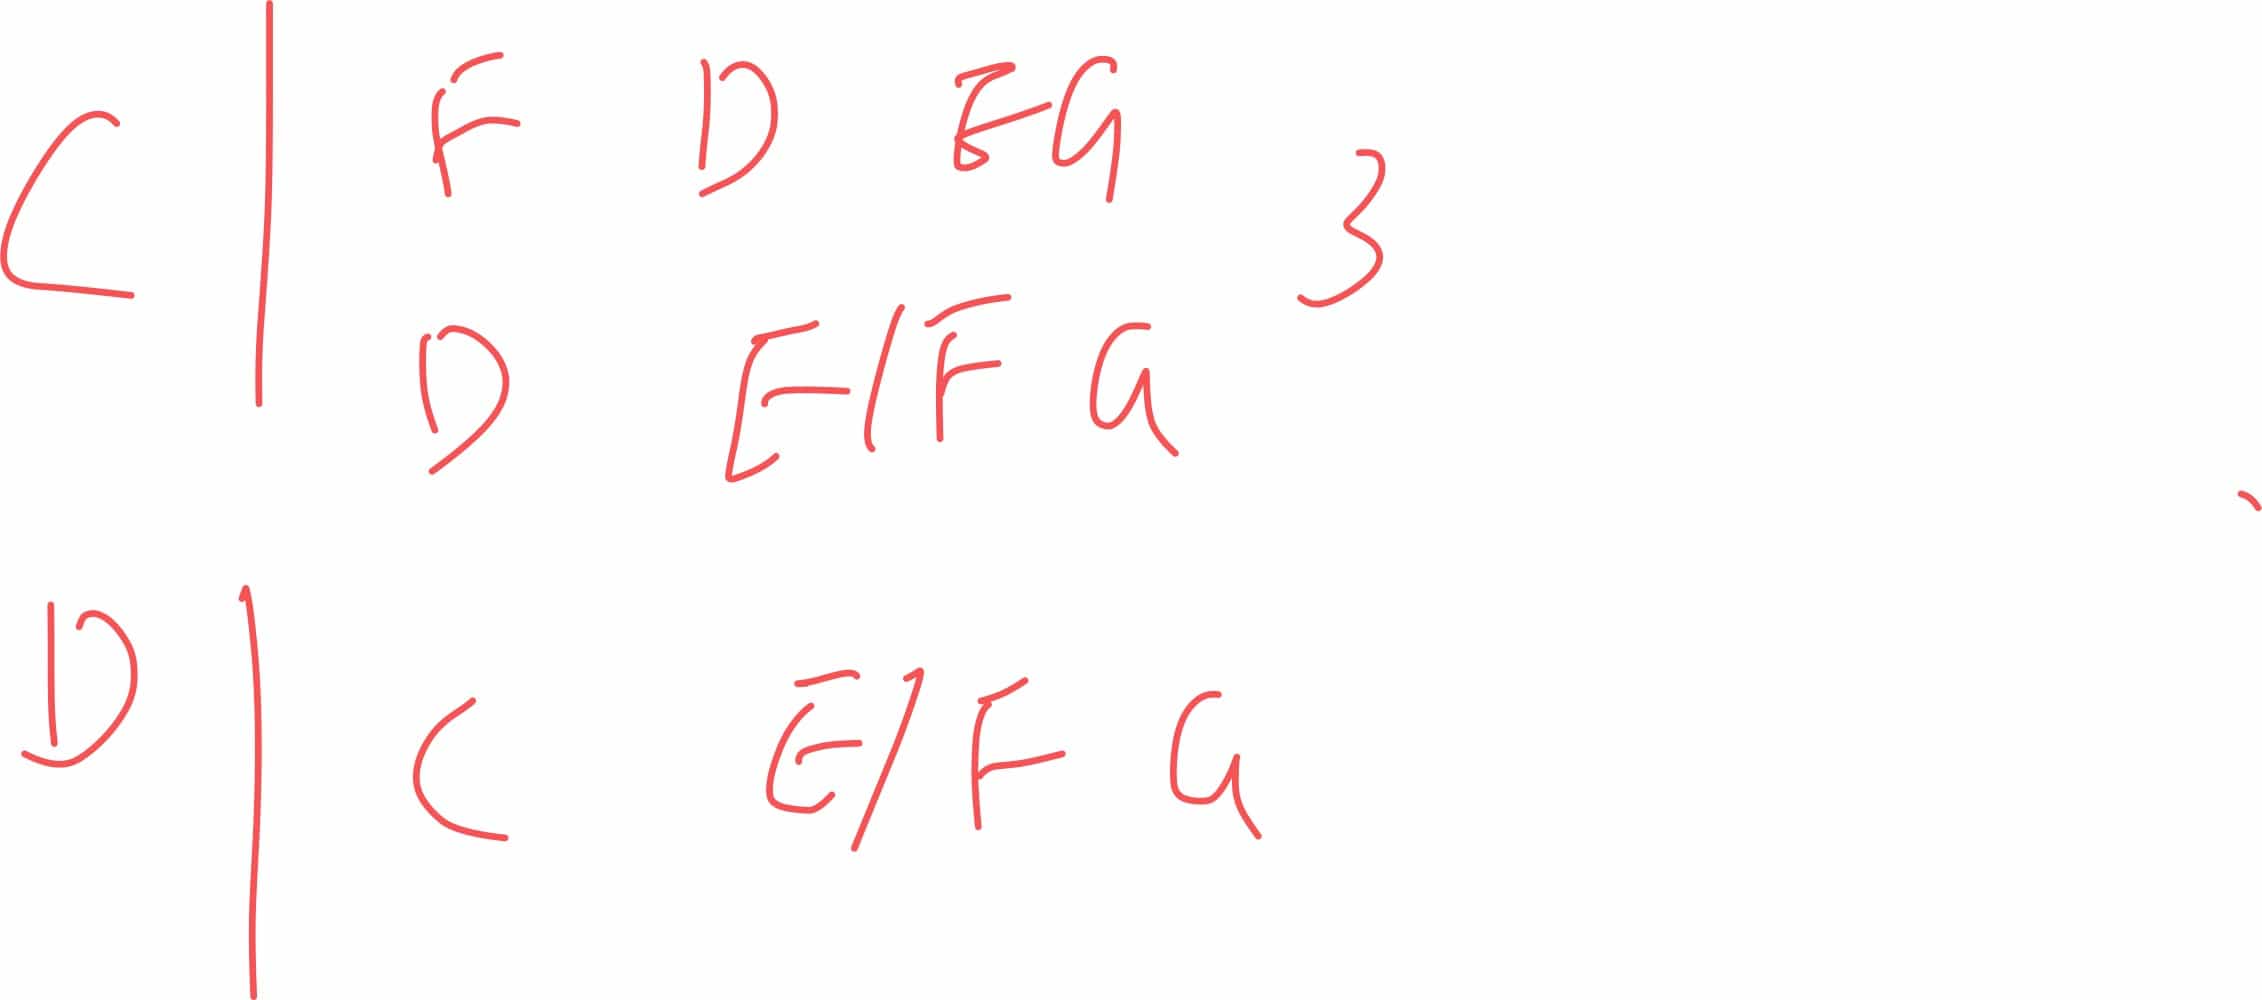 C | F D EG 3
D E/F G
D | C E/F G